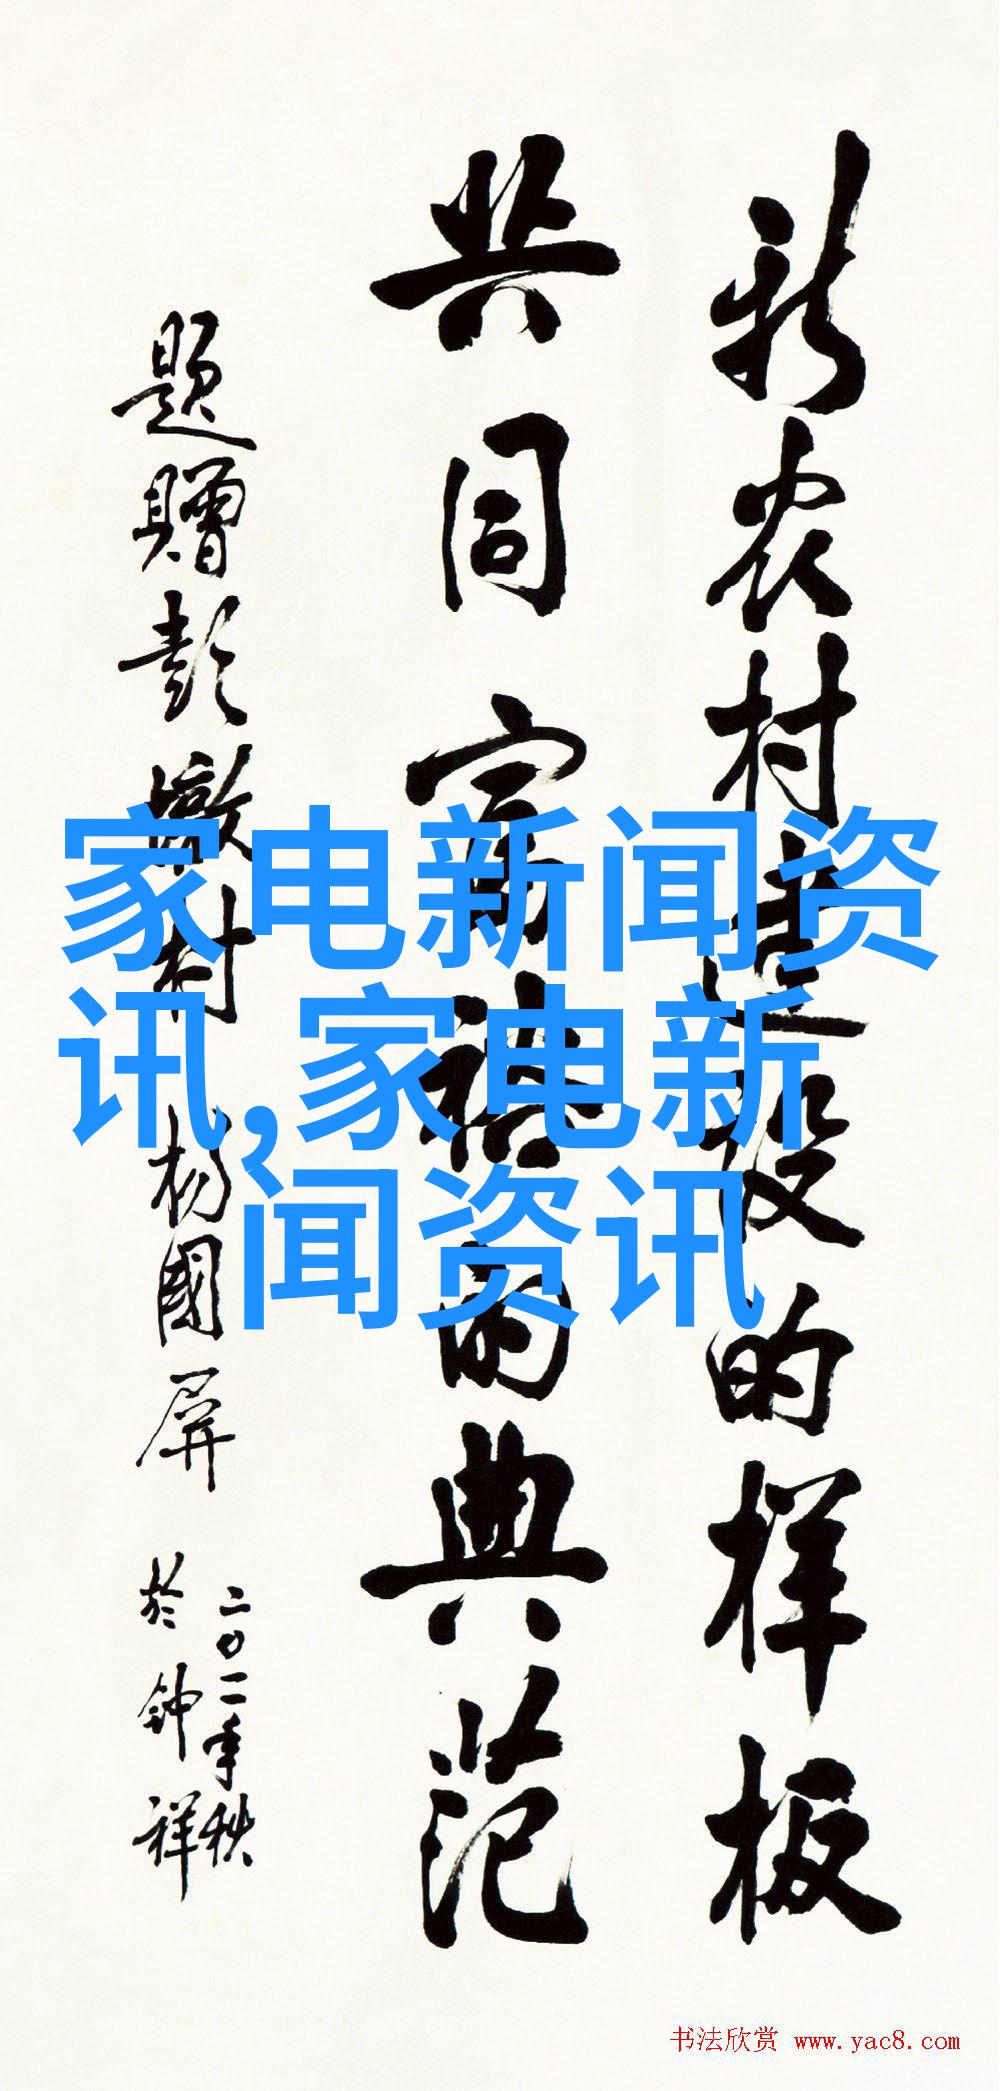 新农村建设的样板
共同富裕的典范
题赠彭墩村 杨国屏
二〇一一年秋
於钟祥
家电新闻资
讯,家电新
闻资讯
书法欣赏 www.yac8.com